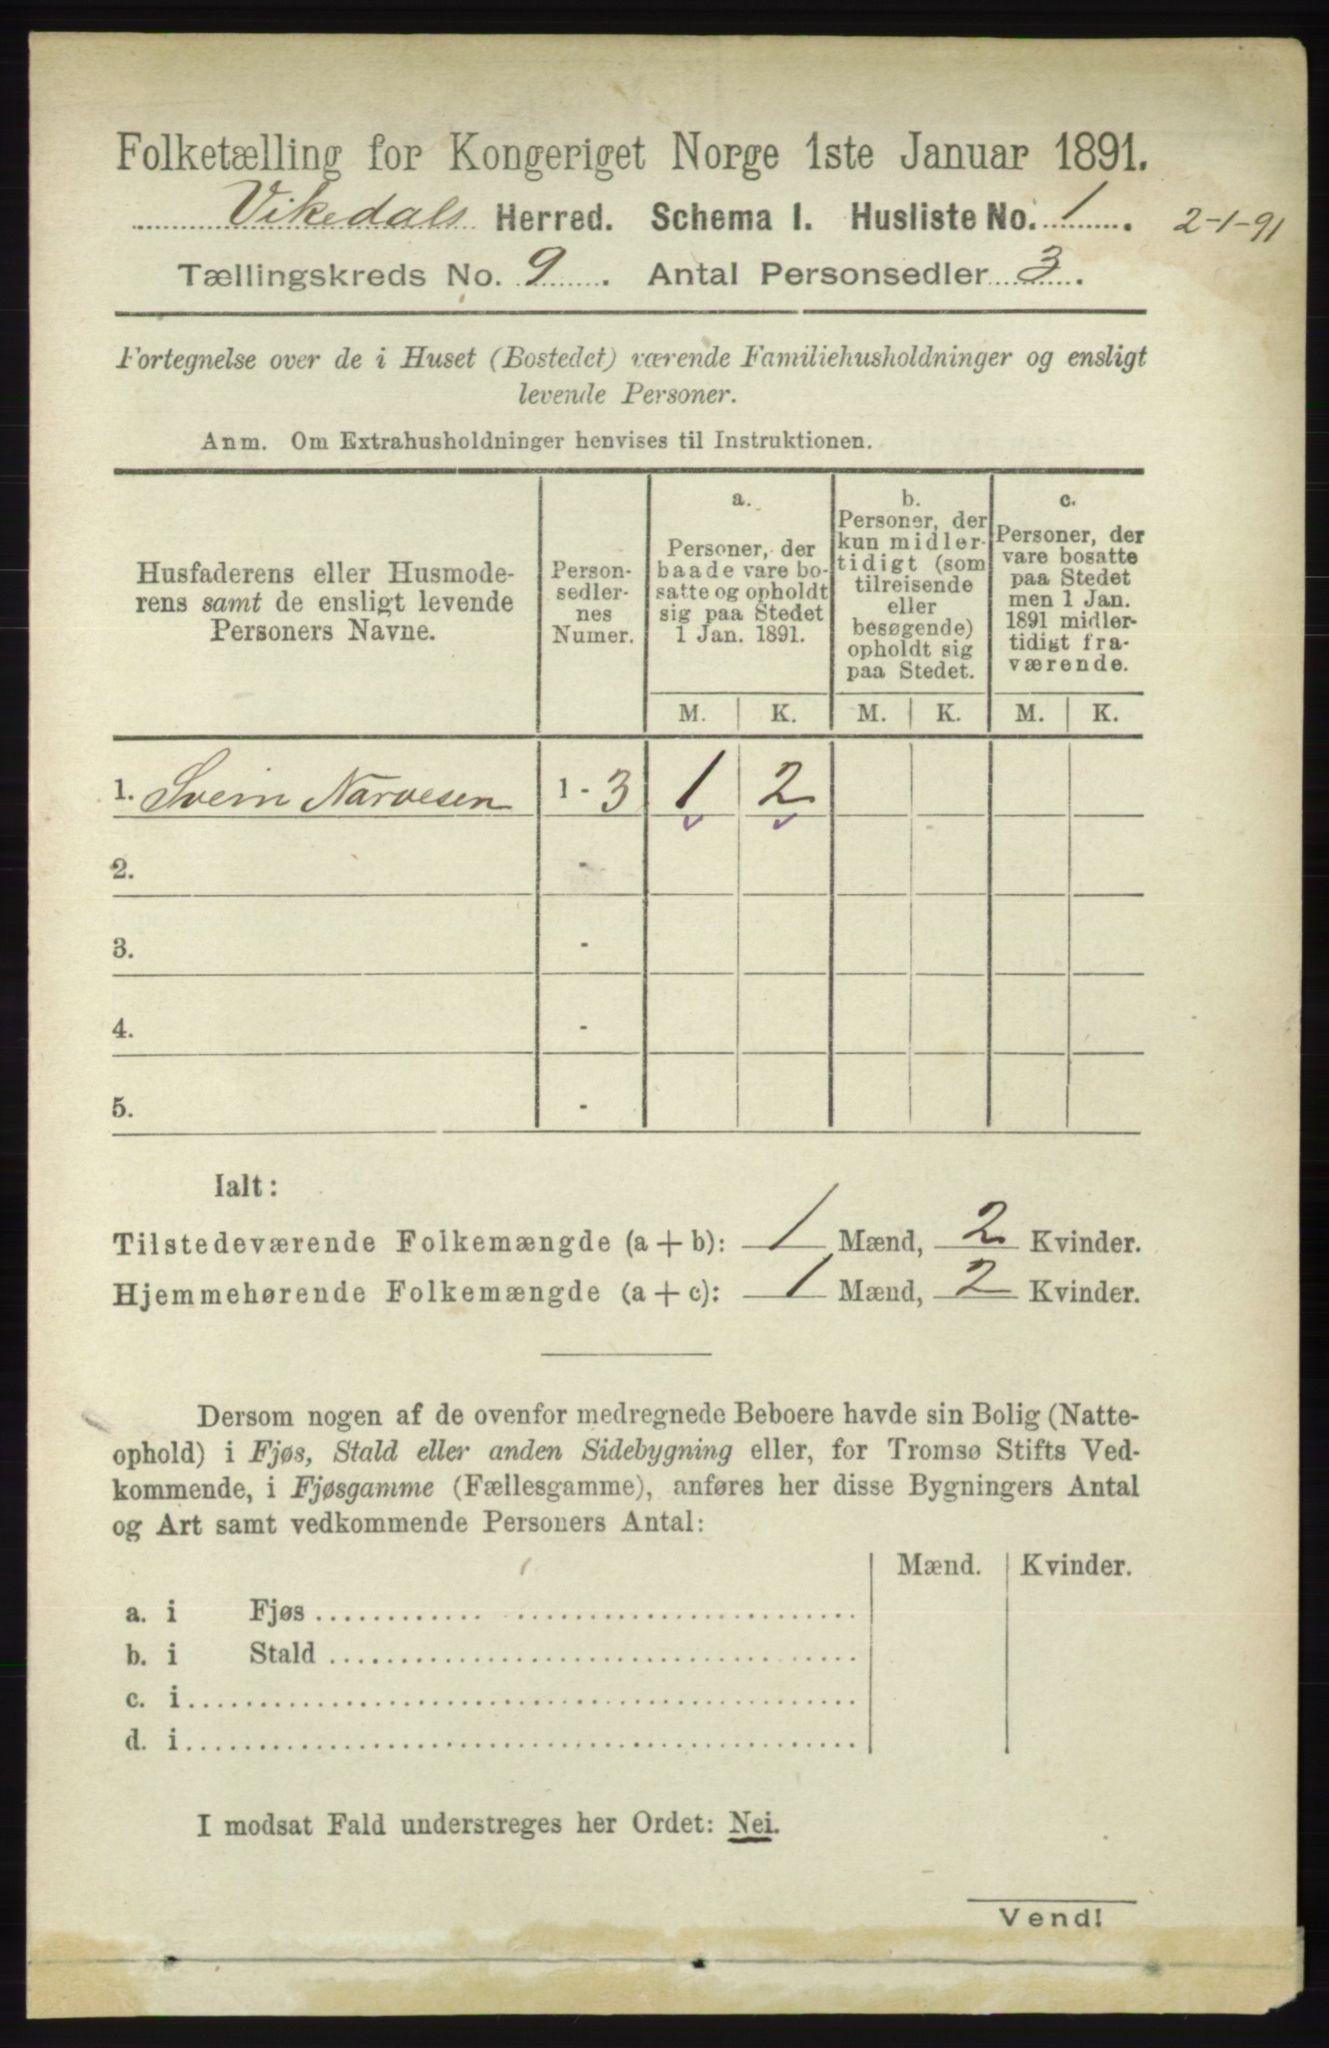 Folketælling for Kongeriget Norge 1ste Januar 1891.
Vikedals Herred. Schema I. Husliste No. 1. 2-1-91
Tællingskreds No. 9. Antal Personsedler 3.
Fortegnelse over de i Huset (Bostedet) værende Familiehusholdninger og ensligt
levende Personer.
Anm. Om Extrahusholdninger henvises til Instruktionen.
Husfaderens eller Husmode-
rens samt de ensligt levende
Personers Navne.
Person-
sedler-
nes
Numer.
a.
Personer, der
baade vare bo-
satte og opholdt
sig paa Stedet
1 Jan. 1891.
b.
Personer, der
kun midler-
tidigt (som
tilreisende
eller
besøgende)
opholdt sig
paa Stedet.
c.
Personer, der
vare bosatte
paa Stedet
men 1 Jan.
1891 midler-
tidigt fra-
værende.
M. K. M. K. M. K.
1. Svein Narvesen 1 - 3 1 2
2. -
3. -
4. -
5. -
Ialt:
Tilstedeværende Folkemængde (a + b): 1 Mænd, 2 Kvinder.
Hjemmehørende Folkemængde (a + c): 1 Mænd, 2 Kvinder.
Dersom nogen af de ovenfor medregnede Beboere havde sin Bolig (Natte-
ophold) i Fjøs, Stald eller anden Sidebygning eller, for Tromsø Stifts Ved-
kommende, i Fjøsgamme (Fællesgamme), anføres her disse Bygningers Antal
og Art samt vedkommende Personers Antal:
Mænd. Kvinder.
a. i Fjøs
b. i Stald
c. i
d. i
I modsat Fald understreges her Ordet: Nei.
Vend!